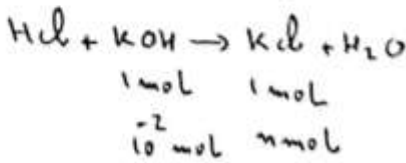 HCl + KOH → KCl + H₂O
1 mol 1 mol
10⁻² mol n mol